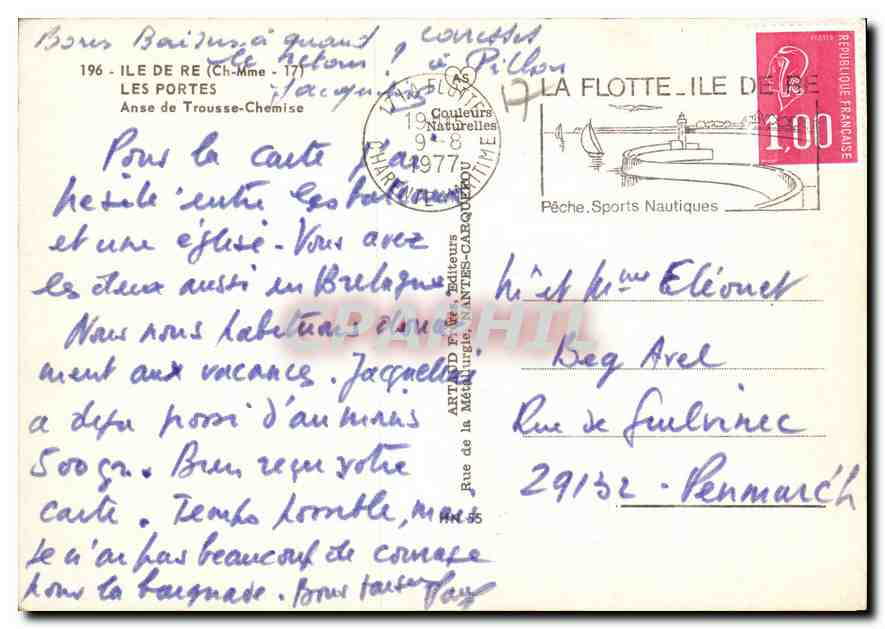 Bons Baisers à quand
le retour ! caresses
à Pillou
Jacqueline
196 - ILE DE RE (Ch-Mme - 17)
LES PORTES
Anse de Trousse-Chemise
Couleurs
Naturelles
17 LA FLOTTE
19 H
9 -8
1977
CHARENTE MARITIME
LA FLOTTE_ILE DE RE
Pêche.Sports Nautiques
REPUBLIQUE FRANÇAISE
1,00
Pour la carte j'ai
hésité entre les bateaux
et une église. Vous avez
les deux aussi en Bretagne.
Nous nous habituons douce
ment aux vacances. Jacqueline
a déjà grossi d'au moins
500 gr. Bien reçu votre
carte. Temps possible, mais
je n'ai pas beaucoup de courage
pour la baignade. Bons baisers
ARTAUD Frères, Editeurs
Rue de la Métallurgie, NANTES-CARQUEFOU
HN 55
CPAPHIL
Mr et Mme Eléouet
Beg Avel
Rue de Guilvinec
29132 - Penmarc'h